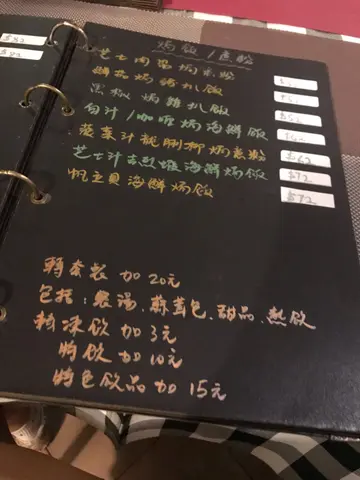 焗飯/意粉
芝士肉醬焗意粉
鮮茄焗豬扒飯
黑椒焗雞扒飯
白汁/咖喱焗海鮮飯
汁龍脷柳焗意粉 $62
芝士汁吉列蝦海鮮焗飯 $72
帆立貝海鮮焗飯 $72
轉套餐 加20元
包括:餐湯、蒜茸包、甜品、熱飲
轉凍飲 加3元
特飲 加10元
特色飲品加15元